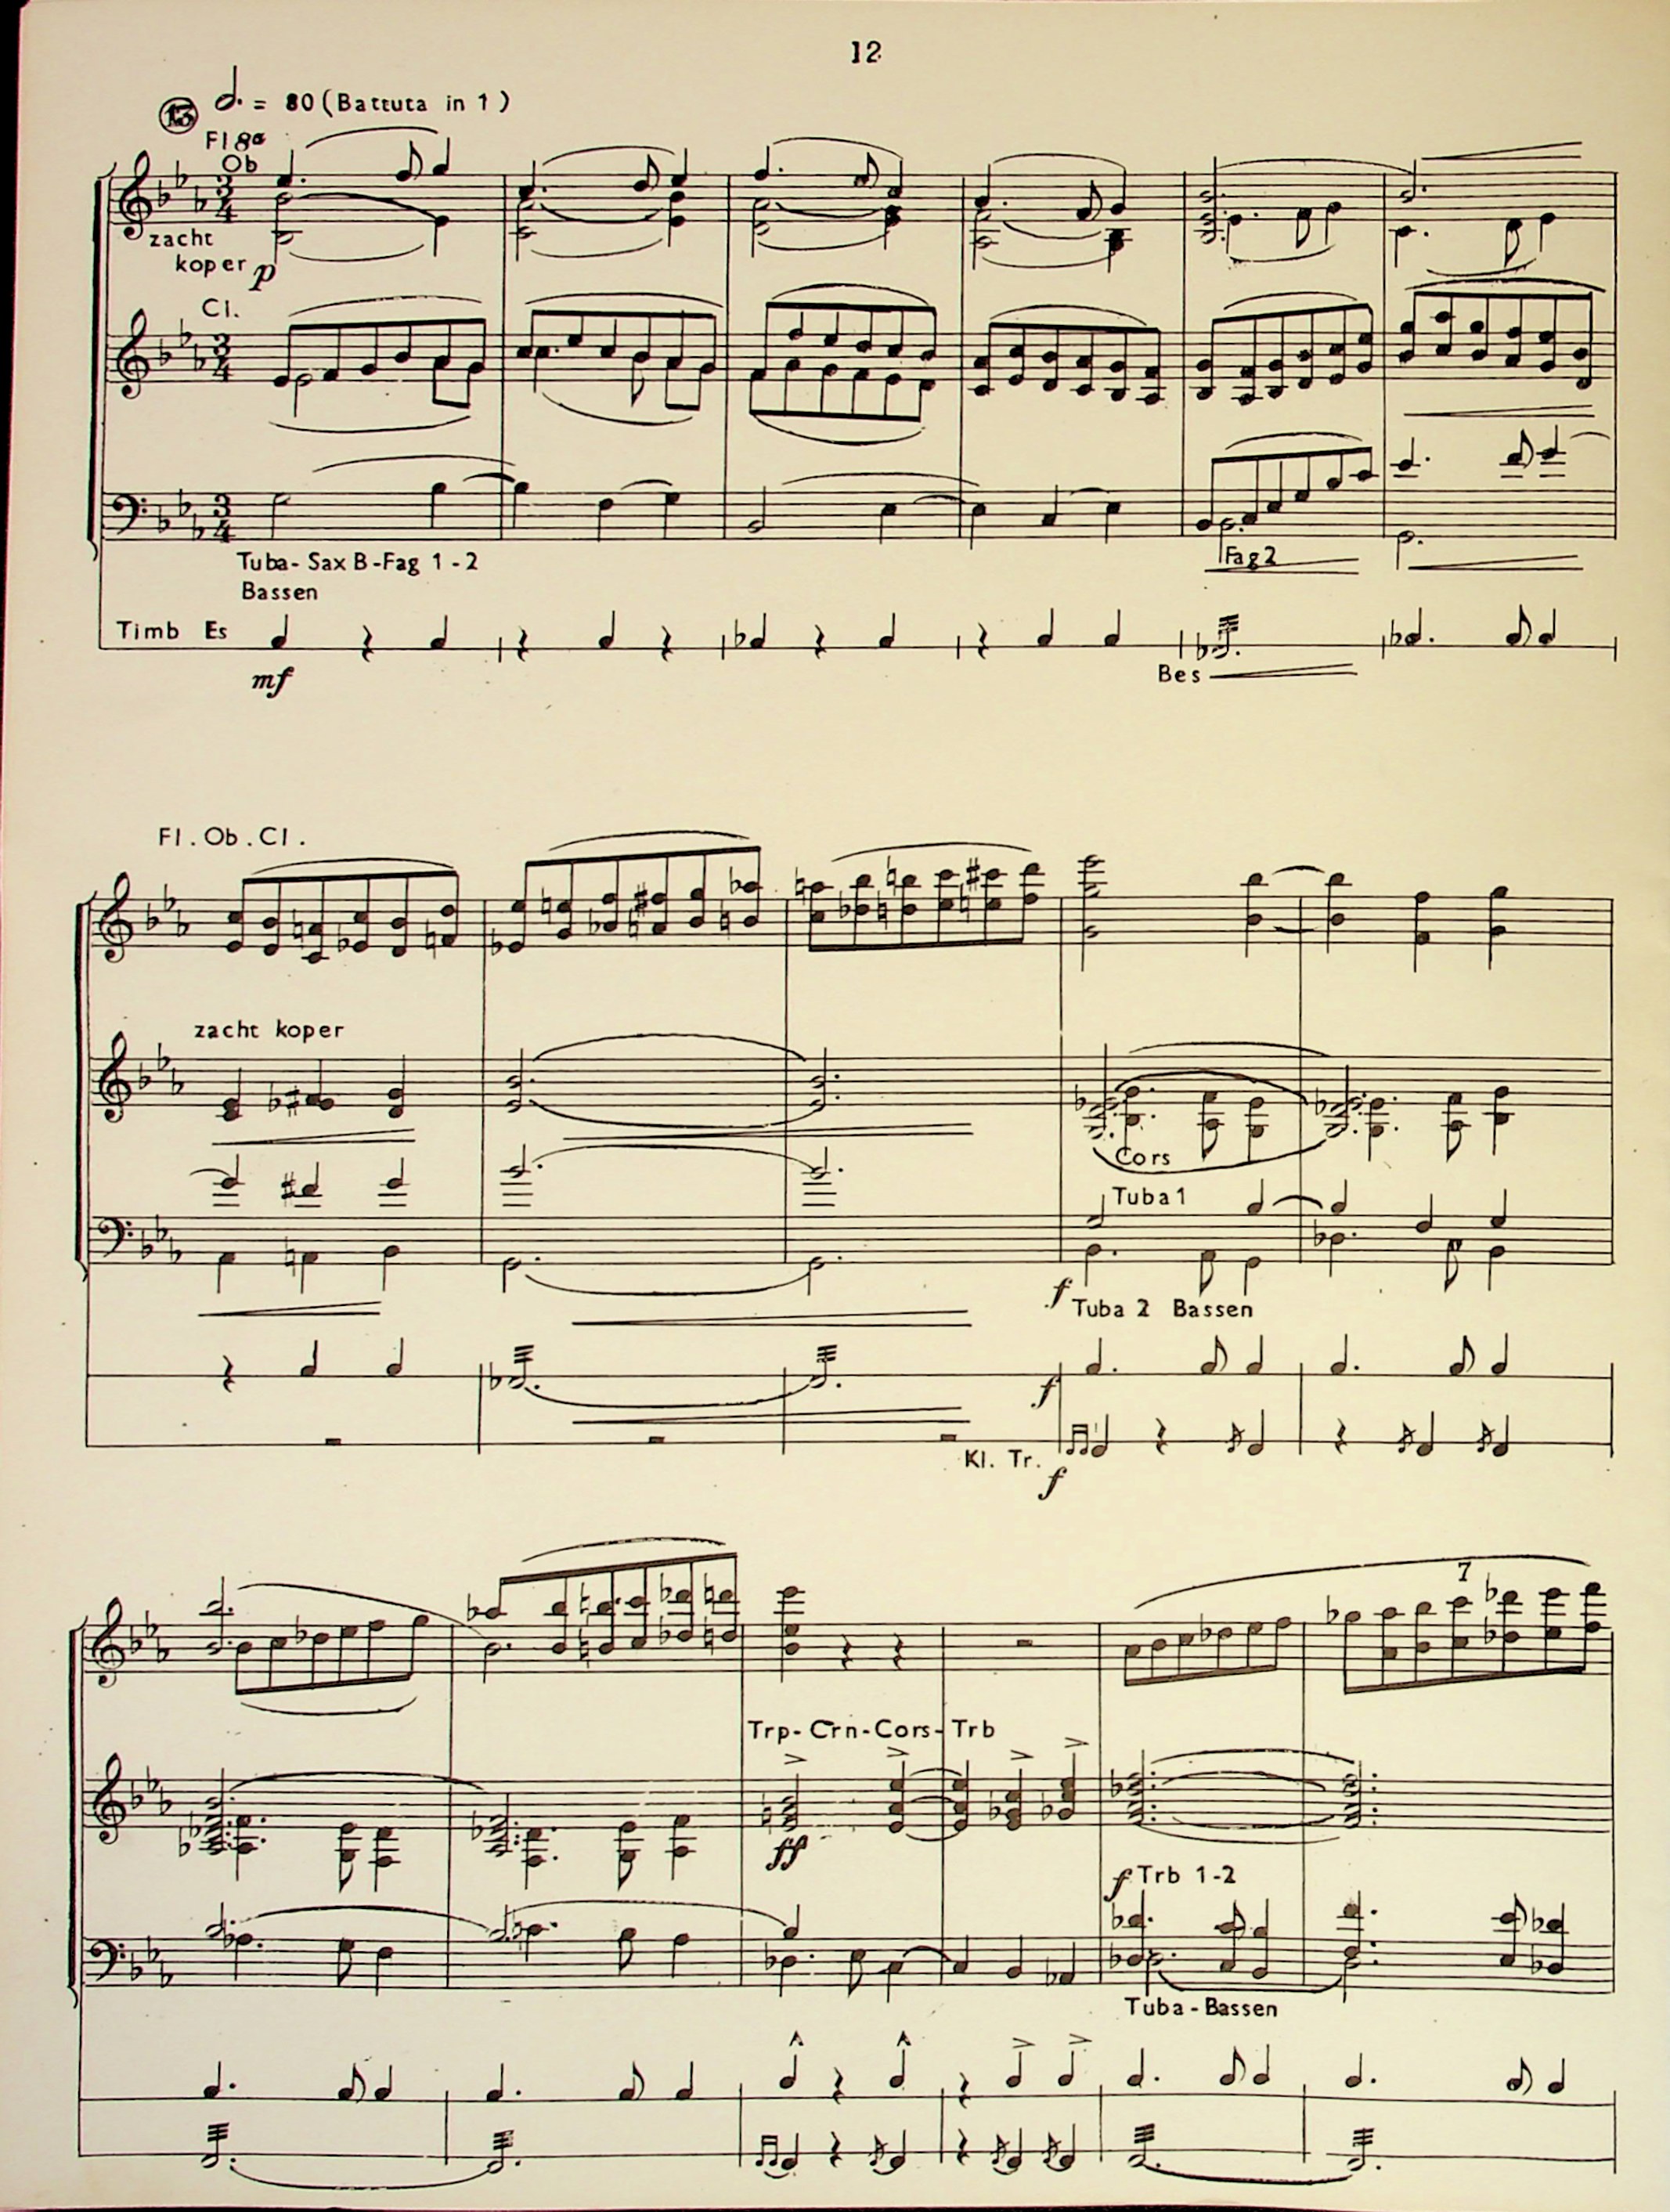 12
13 = 80 (Battuta in 1)
Fl 8a
Ob
3
4
zacht
koper p
Cl.
3
4
3
4
Tuba - Sax B - Fag 1 - 2
Bassen
Fag 2
Timb Es
mf
Bes
Fl. Ob. Cl.
zacht koper
Cors
Tuba 1
f
Tuba 2 Bassen
f
Kl. Tr.
f
7
Trp - Crn - Cors - Trb
ff
f Trb 1-2
Tuba - Bassen